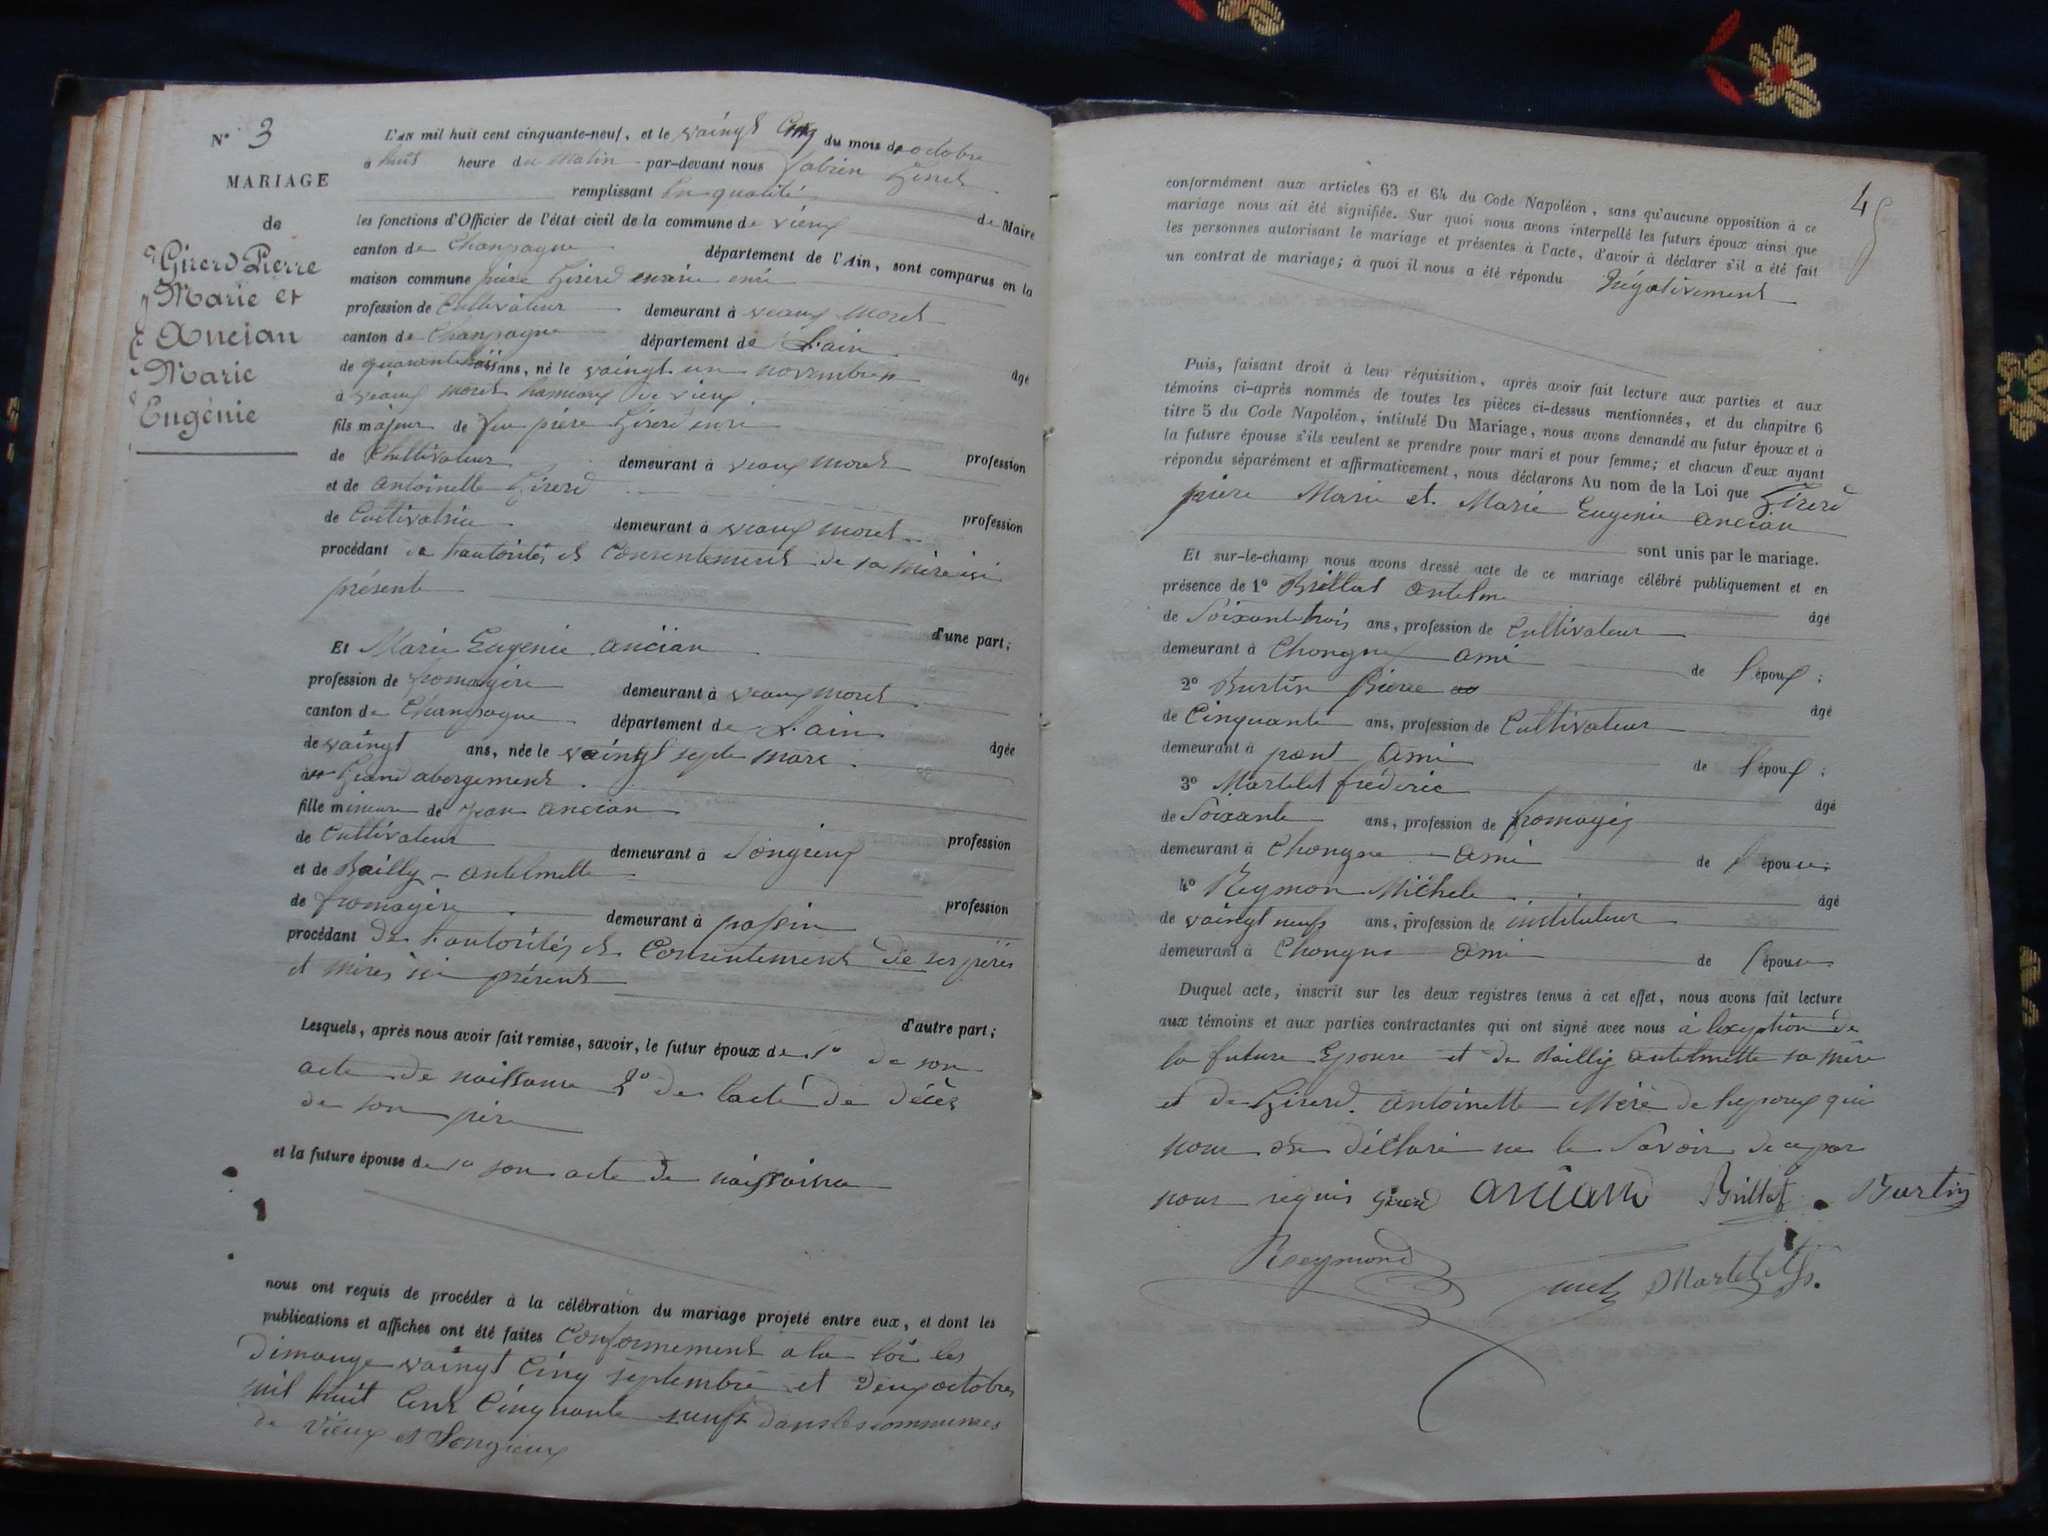 N° 3
MARIAGE
de
Girerd Pierre
Marie et
Ancian
Marie
Eugénie
L'AN mil huit cent cinquante-neuf, et le vaingt cinq du mois de octobre
à huit heure du matin par-devant nous Fabien
remplissant en qualité de Maire
les fonctions d'Officier de l'état civil de la commune de vieux
canton de Champagne département de l'Ain, sont comparus en la
maison commune pière Girerd marie
profession de Cultivateur demeurant à veaux moret
canton de Champagne département de L'ain
de quarante trois ans, né le vaingt un novembre âgé
à veaux moret hameaux de vieux
fils majeur de feu pière Girerd
de Cultivateur demeurant à veaux moret profession
et de antoinette Girerd
de Cultivatrice demeurant à veaux moret profession
procédant de l'autorités et consentement de sa mère ici
présente
d'une part;
Et Marie Eugenie ancian
profession de fromagère demeurant à veaux moret
canton de Champagne département de L'ain
de vaingt ans, née le vaingt septe mars âgée
au Grand abergement
fille mineure de jean ancian
de Cultivateur demeurant à Songieux profession
et de Bailly antelmette
de fromagère demeurant à passin profession
procédant de l'autorités et Consentement de ses pères
et mères ici présent
d'autre part;
Lesquels, après nous avoir fait remise, savoir, le futur époux de 1° de son
acte de naissance 2° de lacte de décès
de son père
et la future épouse de 1° son acte de naissaina
nous ont requis de procéder à la célébration du mariage projeté entre eux, et dont les
publications et affiches ont été faites Conformement a la loi les
dimange vaingt cinq septembre et deux octobres
mil huit cent cinquante neufs dans les communes
de vieux et Songieux
4
conformément aux articles 63 et 64 du Code Napoléon, sans qu'aucune opposition à ce
mariage nous ait été signifiée. Sur quoi nous avons interpellé les futurs époux ainsi que
les personnes autorisant le mariage et présentes à l'acte, d'avoir à déclarer s'il a été fait
un contrat de mariage; à quoi il nous a été répondu Négativement
Puis, faisant droit à leur réquisition, après avoir fait lecture aux parties et aux
témoins ci-après nommés de toutes les pièces ci-dessus mentionnées, et du chapitre 6
titre 5 du Code Napoléon, intitulé Du Mariage, nous avons demandé au futur époux et à
la future épouse s'ils veulent se prendre pour mari et pour femme; et chacun d'eux ayant
répondu séparément et affirmativement, nous déclarons Au nom de la Loi que Girerd
piere Marie et Marie Eugenie ancian
sont unis par le mariage.
Et sur-le-champ nous avons dressé acte de ce mariage célébré publiquement et en
présence de 1° Brillat antelme
de Soixante trois ans, profession de Cultivateur âgé
demeurant à Chongne ami de l'époux;
2° Burtin Pierre
de Cinquante ans, profession de Cultivateur âgé
demeurant à pont ami de l'époux;
3° Martelet frederic
de Soixante ans, profession de fromagér âgé
demeurant à Chongne ami de l'épouse;
4° Reymon Michele
de vaingt neufs ans, profession de instituteur âgé
demeurant à Chongne ami de l'épouse
Duquel acte, inscrit sur les deux registres tenus à cet effet, nous avons fait lecture
aux témoins et aux parties contractantes qui ont signé avec nous à lexeption de
la future Epouse et de Bailly antelmette sa mère
et de Girerd antoinette Mère de lepoux qui
nous on déclaré ne le Savoir de ce par
nous requis Girerd anciand Brillat Burtin
Reymond Martelet